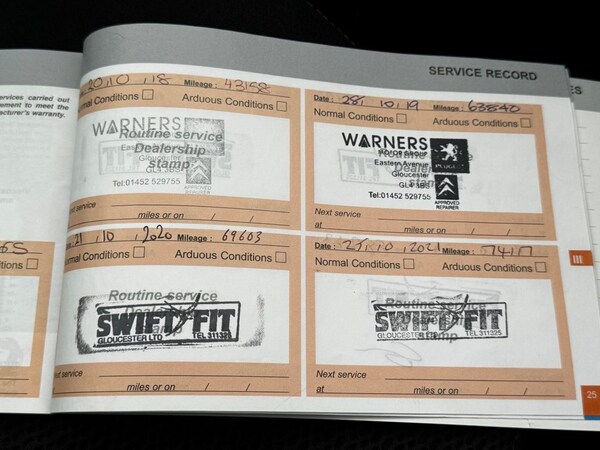 SERVICE RECORD
ervices carried out
ement to meet the
cturer's warranty.
ES
20.10.18 Mileage: 43158
rmal Conditions Arduous Conditions
WARNERS
Routine service
Dealership
stamp
Gloucester
GL4 3BS
Tel:01452 529755
APPROVED
REPAIRER
xt service
miles or on / /
Date: 28.10.19 Mileage: 63840
Normal Conditions Arduous Conditions
WARNERS
MOTOR GROUP
Eastern Avenue
Gloucester
GL4 3BS
Tel:01452 529755
PEUGEOT
APPROVED
REPAIRER
Next service
at miles or on / /
: 21, 10, 2020 Mileage: 69603
mal Conditions Arduous Conditions
Routine service
SWIFT FIT
GLOUCESTER LTD TEL 311325
service
miles or on / /
Date: 10, 2021 Mileage:
Normal Conditions Arduous Conditions
Routine service
SWIFT FIT
GLOUCESTER LTD TEL 311325
stamp
Next service
at miles or on / /
tions
III
25